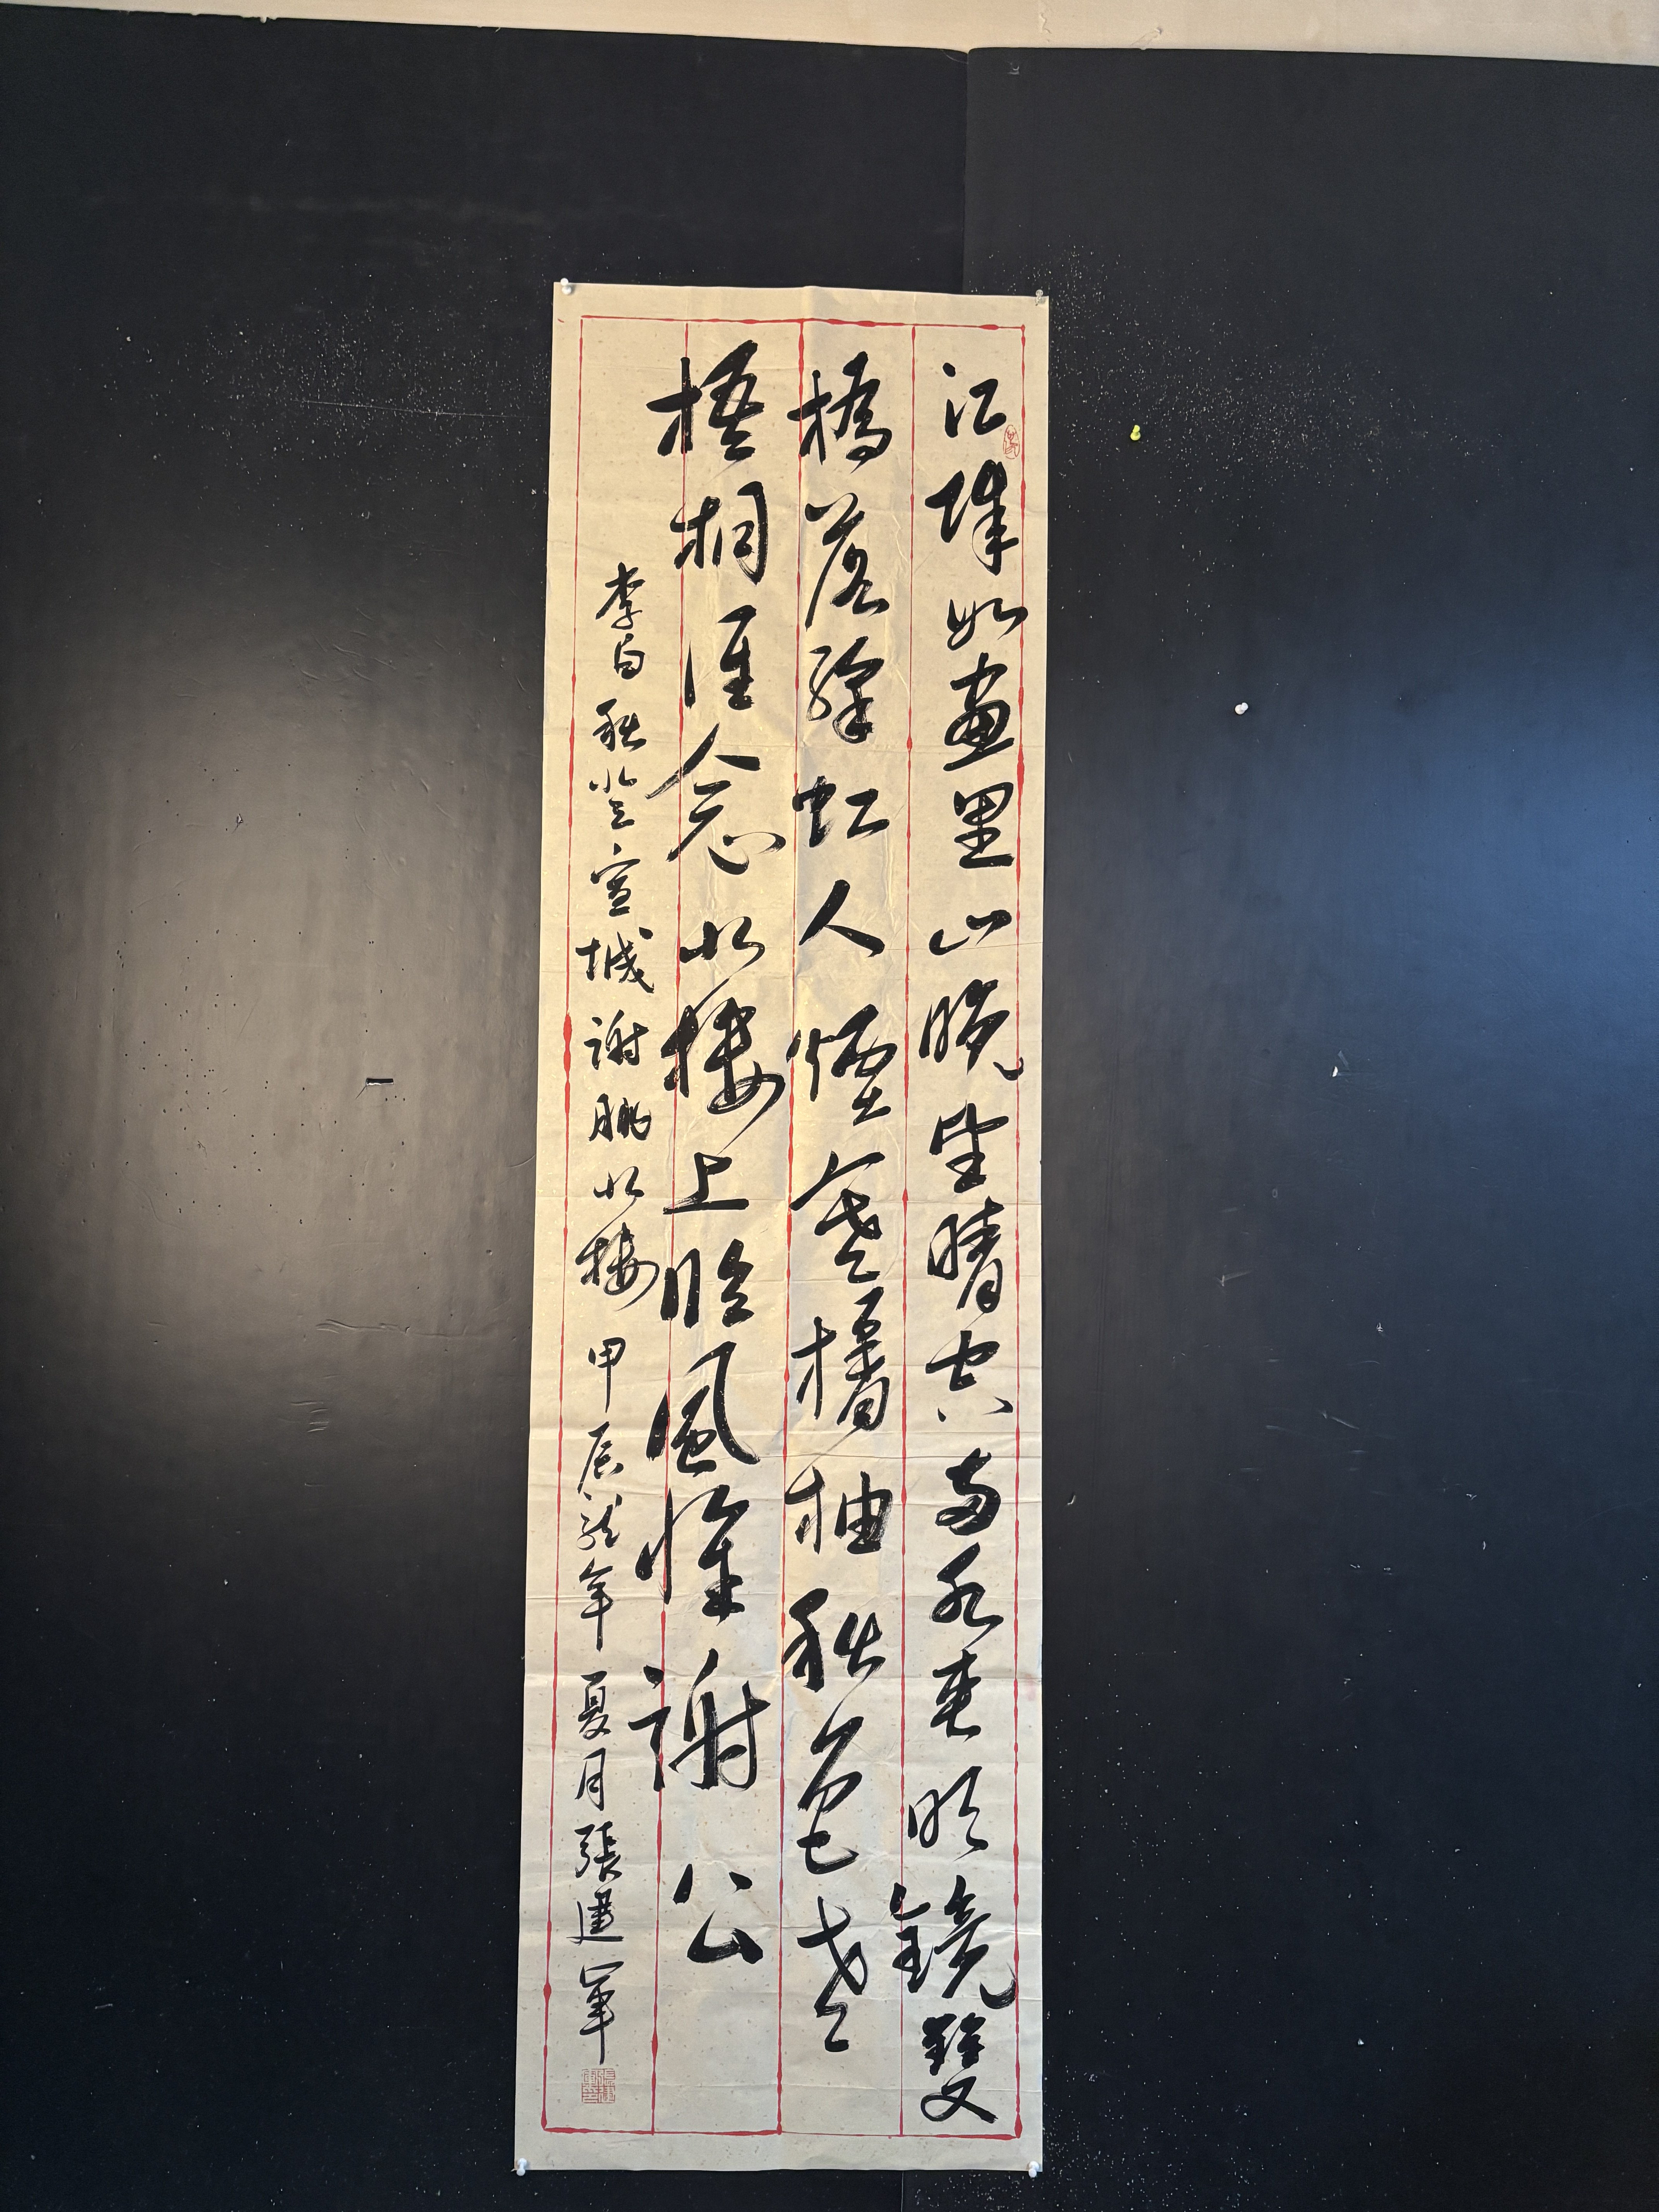 江城如畫里山曉望晴空兩水夾明鏡雙
橋落彩虹人煙寒橘柚秋色老
梧桐誰念北樓上臨風懷謝公
李白秋登宣城謝朓北樓甲辰龍年夏月張建軍